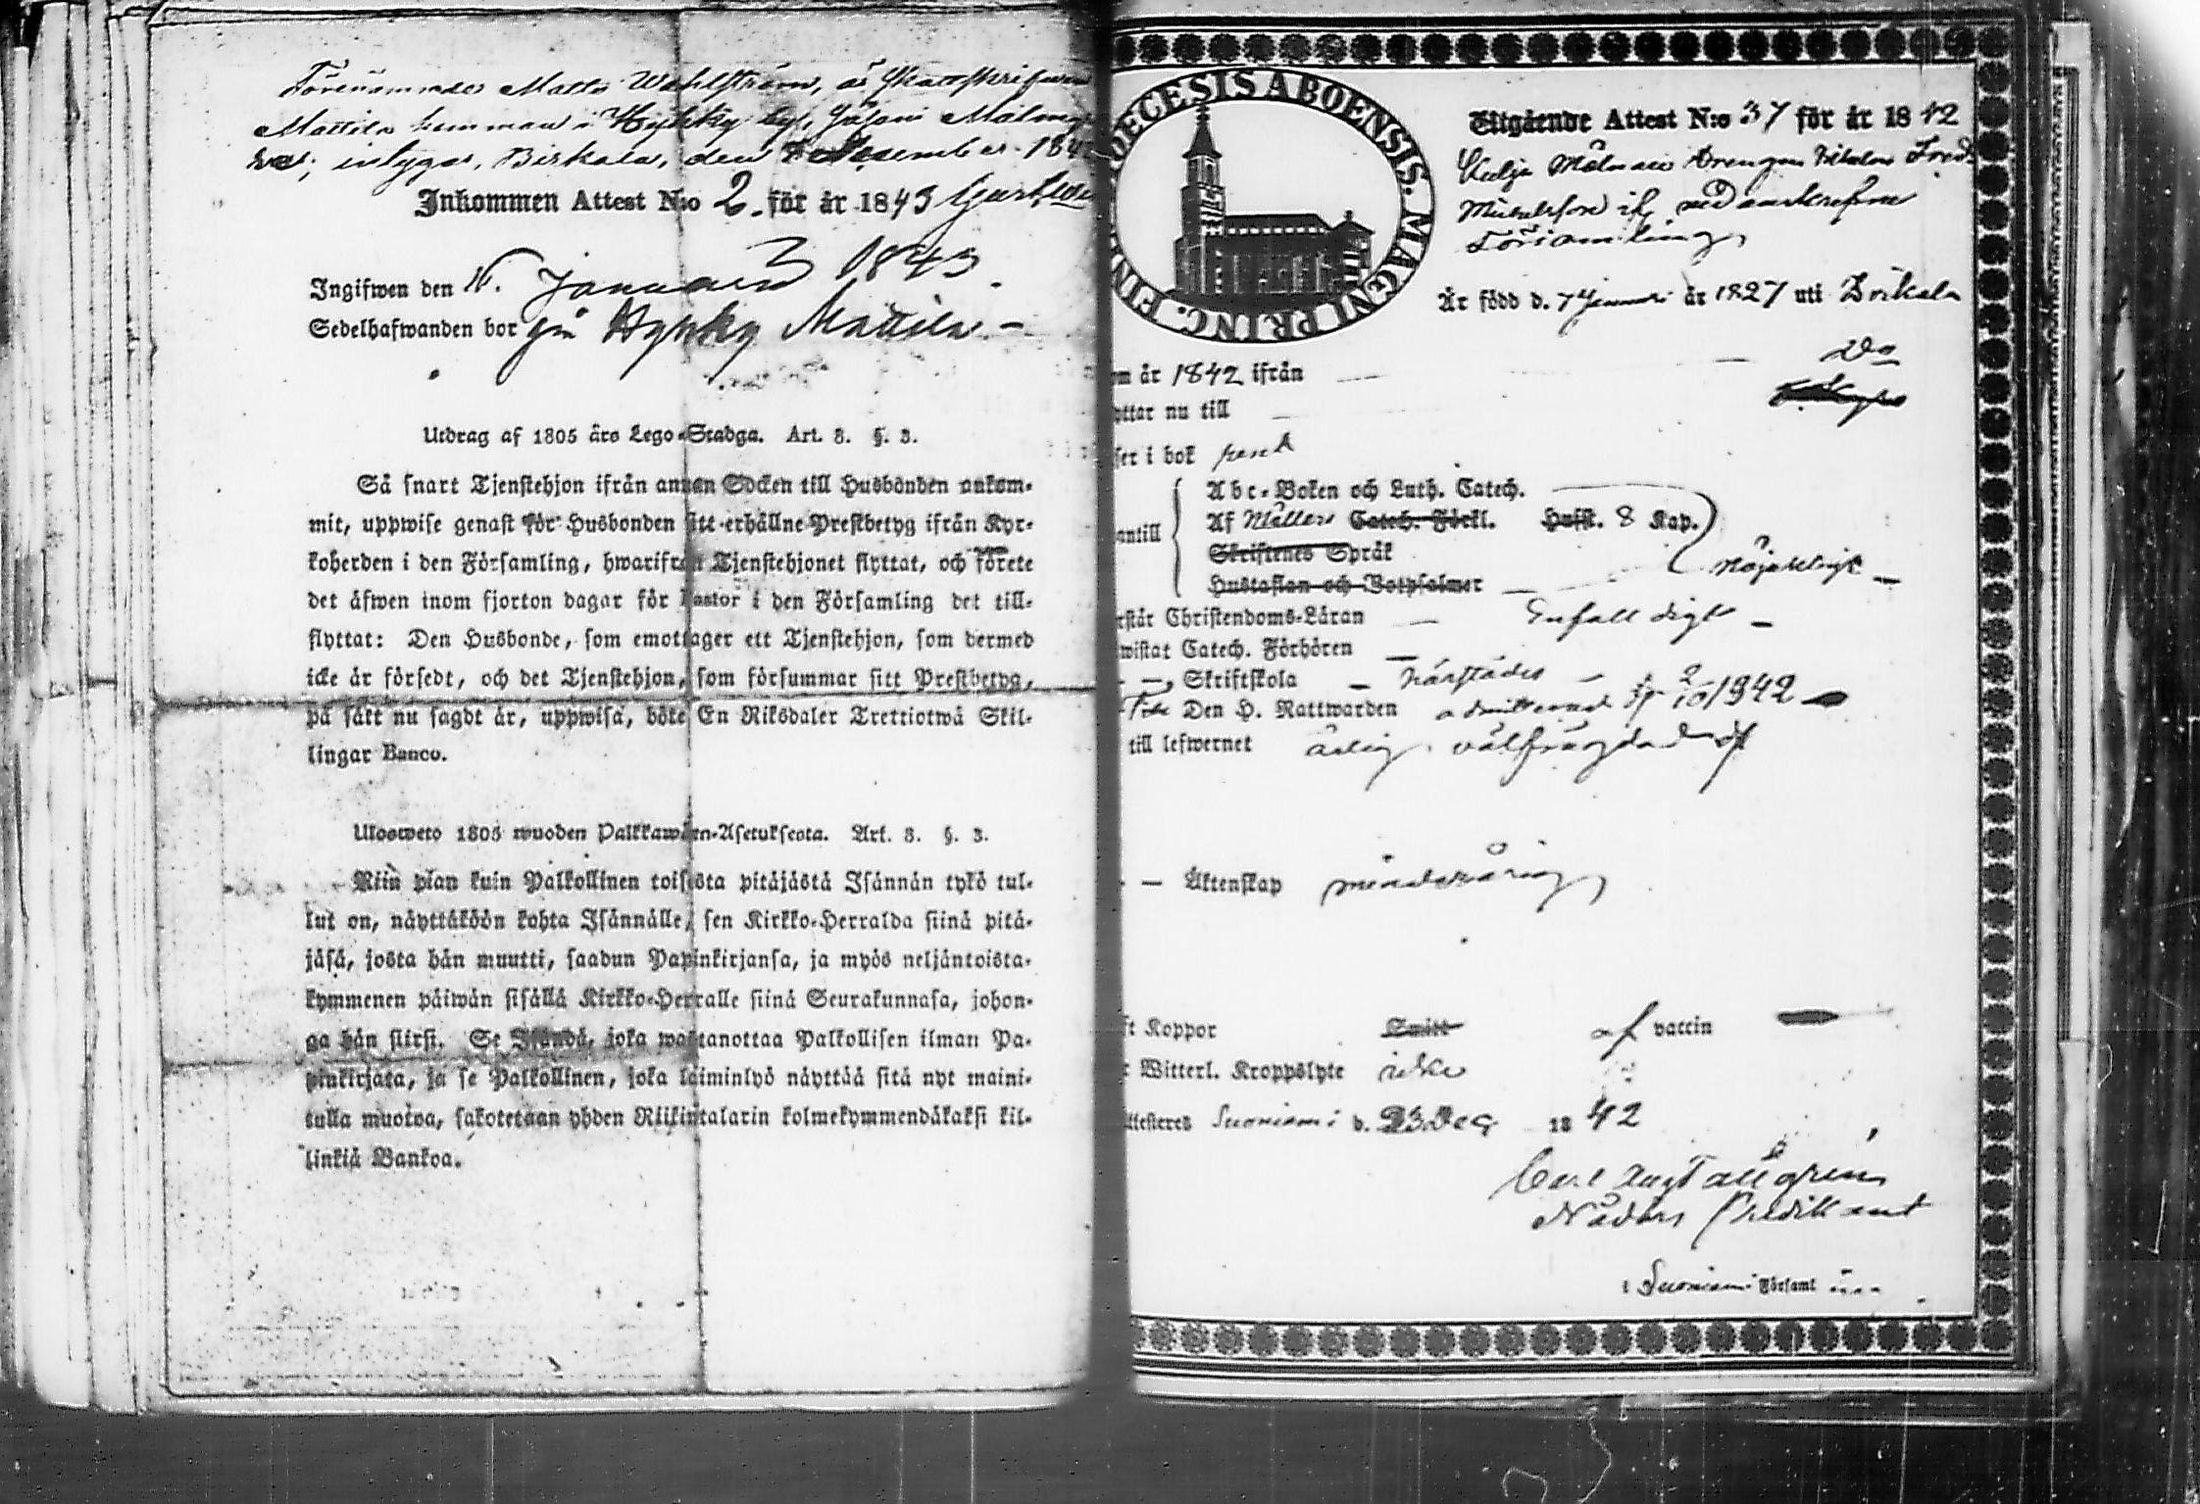 Förenämnde Matts Wahlström, är skattskrifven
Mattila hemman i Hyhky by, Jäsoni Målnegs
intygar, Birkala, den December 184
Inkommen Attest N:o 2. för år 1843
Ingifwen den 16. Januari 1843.
Sedelhafwanden bor på Hyhky Mattila –
Utdrag af 1805 års Lego-Stadga. Art. 8. §. 3.
Så snart Tjenstehjon ifrån annan Socken till Husbonden ankom-
mit, uppwise genast för Husbonden sitt erhållne Prestbetyg ifrån Kyr-
koherden i den Församling, hwarifrån Tjenstehjonet flyttat, och förete
det äfwen inom fjorton dagar för Pastor i den Församling det till-
flyttat: Den Husbonde, som emottager ett Tjenstehjon, som dermed
icke är försedt, och det Tjenstehjon, som försummar sitt Prestbetyg,
på sätt nu sagdt är, uppwisa, böte En Riksdaler Trettiotwå Skil-
lingar Banco.
Ulosweto 1805 wuoden Palkkawäen-Asetuksesta. Art. 8. §. 3.
Niin pian kuin Palkollinen toisesta pitäjästä Isännän tykö tul-
lut on, näyttäköön kohta Isännälle, sen Kirkko-Herralda siinä pitä-
jäsä, josta hän muutti, saadun Papinkirjansa, ja myös neljäntoista-
kymmenen päiwän sisällä Kirkko-Herralle siinä Seurakunnasa, johon-
ga hän siirsi. Se Isändä, joka wastanottaa Palkollisen ilman Pa-
pinkirjata, ja se Palkollinen, joka laiminlyö näyttää sitä nyt maini-
tulla muotoa, sakotetaan yhden Riikintalarin kolmekymmendäkaksi kil-
linkiä Bankoa.
DIOECESIS ABOENSIS. MAGNI PRINC. FINL
Utgående Attest N:o 37 för år 1842
Drengen
Församling
Är född d. 7 Januari år 1827 uti Birkala
om år 1842 ifrån — Do
yttar nu till
ser i bok rent
antill
Abc-Boken och Luth. Catech.
Af Möllers Catech. Förkl. Husst. 8 Kap.
Skriftenes Språk
Nöjaktligt –
Hustaflan och Botpsalmer
rstår Christendoms-Läran — Enfalldigt –
wistat Catech. Förhören —
– –, Skriftskola – härstädes –
Den H. Nattwarden admitterad 2/10 1842
till lefwernet ärlig. välfrägdad
– — Äktenskap minderårig
ft Koppor Smitt af vaccin
r Witterl. Kroppslyte icke
ttesteres Suoniemi d. 23 Dec 1842
Carl Aug Tallgren
Nådårs Predikant
i Suoniemi Församl